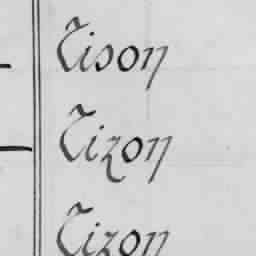 Tison
Tizon
Tizon